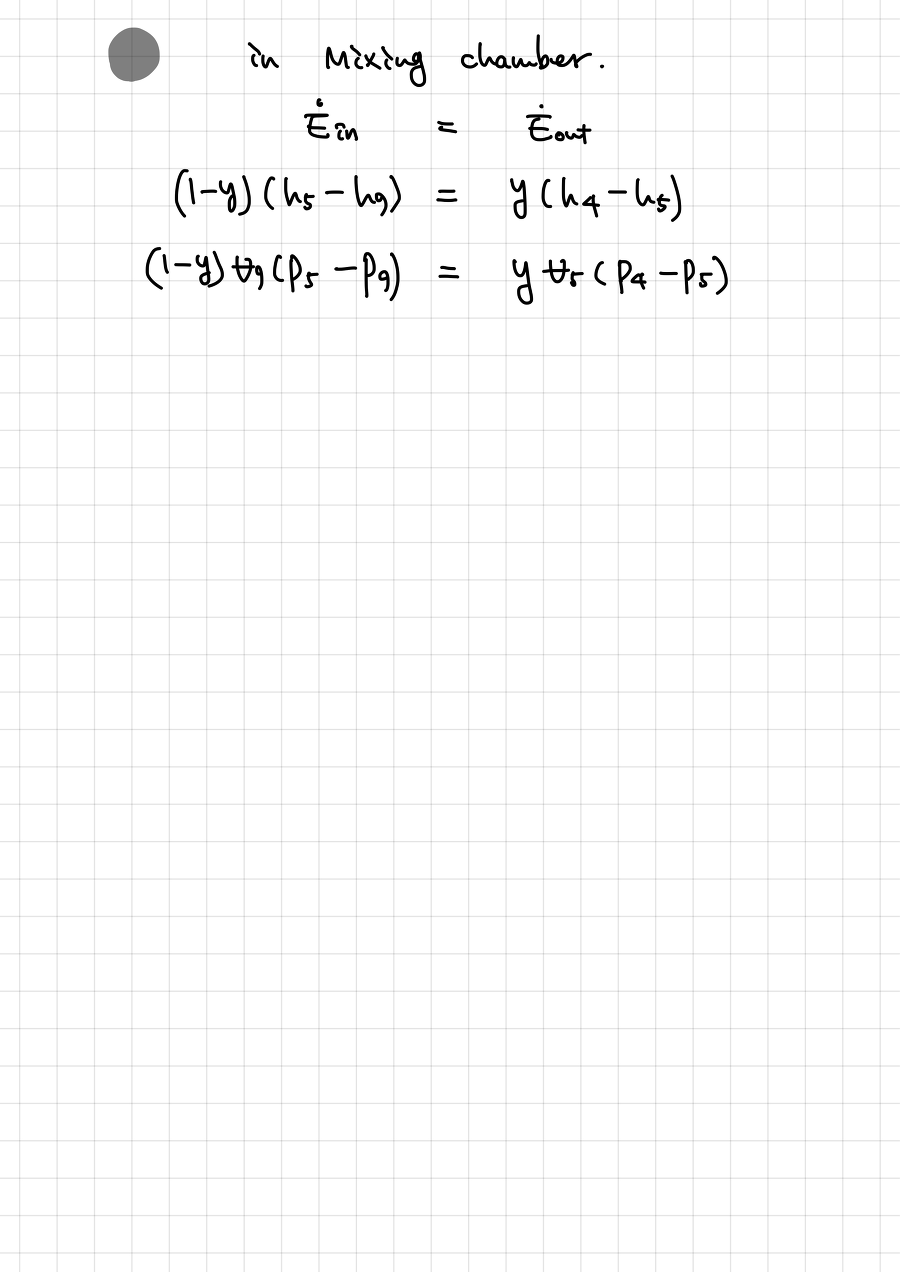 in Mixing chamber.
Ėin = Ėout
(1-y)(h5-h9) = y(h4-h5)
(1-y)v9(P5-P9) = yv5(P4-P5)